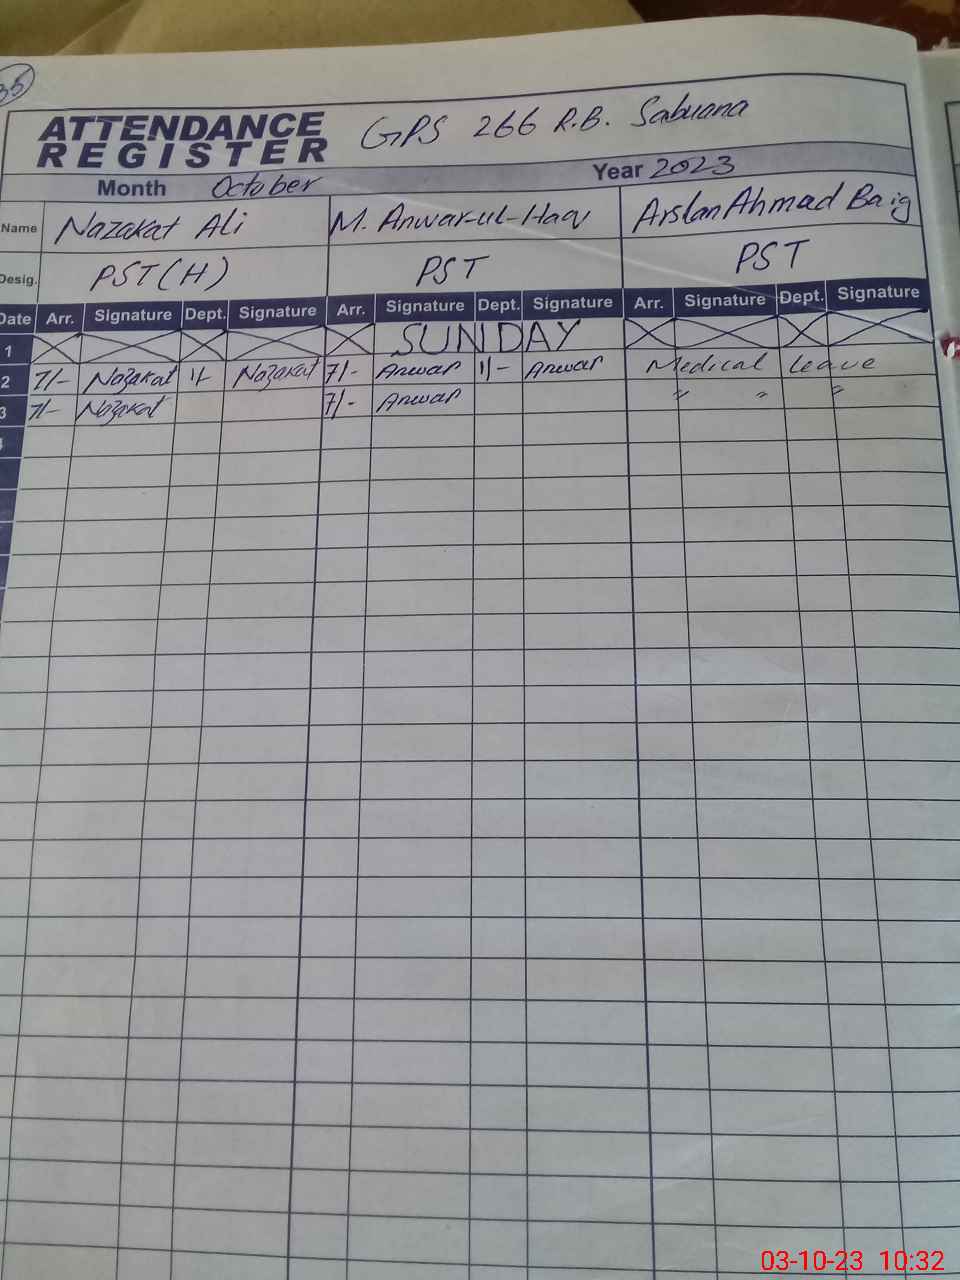 35
ATTENDANCE REGISTER GPS 266 R.B. Sabuana
Month October Year 2023
Name Nazakat Ali M. Anwar-ul-Haq Arslan Ahmad Baig
Desig. PST(H) PST PST
Date Arr. Signature Dept. Signature Arr. Signature Dept. Signature Arr. Signature Dept. Signature
1 SUNDAY
2 7/- Nazakat 1/- Nazakat 7/- Anwar 1/- Anwar Medical Leave
3 7/- Nazakat 7/- Anwar " " "
03-10-23 10:32